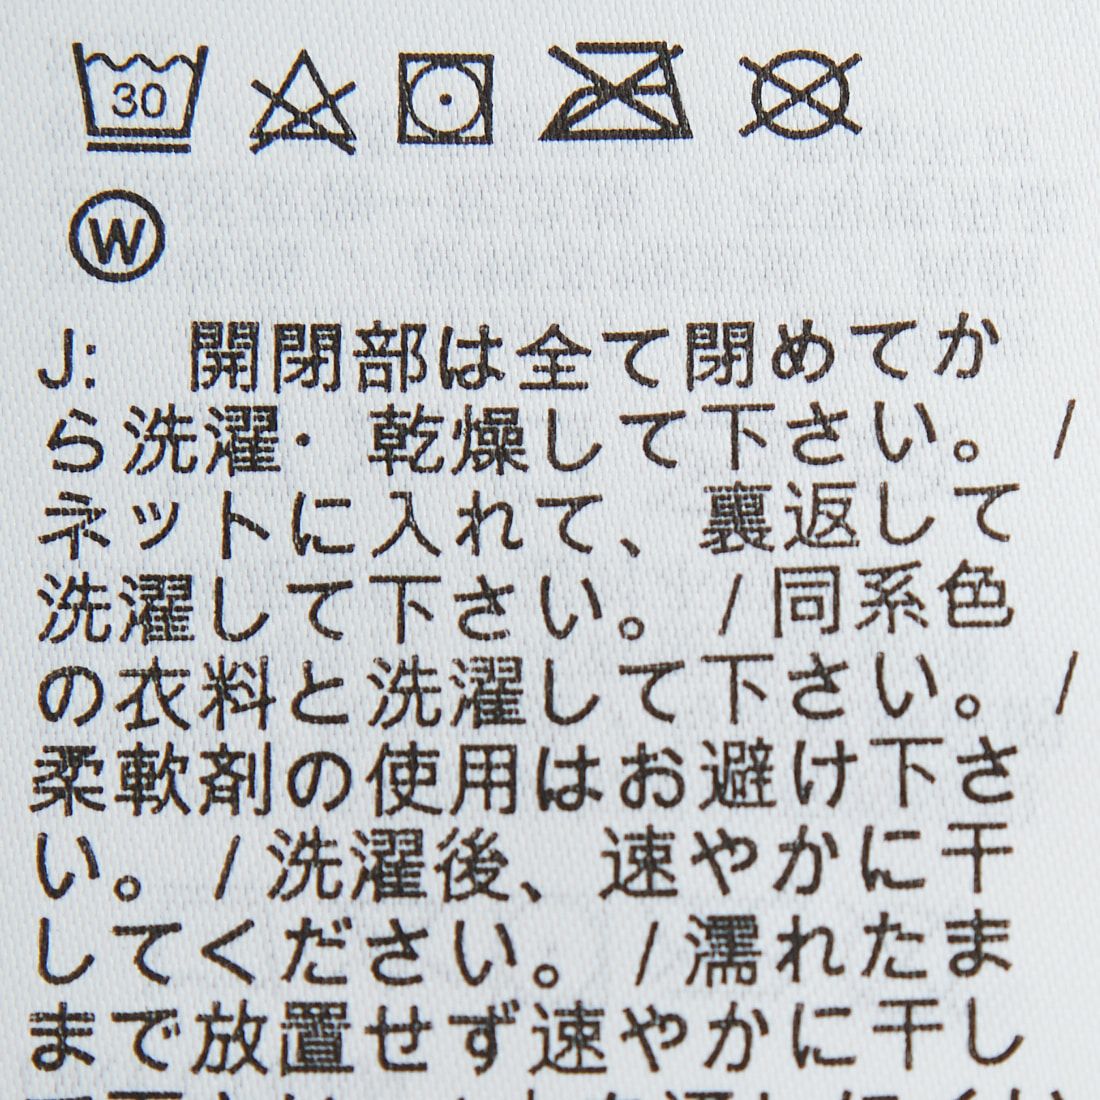 30
W
J: 開閉部は全て閉めてか
ら洗濯・乾燥して下さい。 /
ネットに入れて、裏返して
洗濯して下さい。 /同系色
の衣料と洗濯して下さい。 /
柔軟剤の使用はお避け下さ
い。 /洗濯後、速やかに干
してください。 /濡れたま
まで放置せず速やかに干し